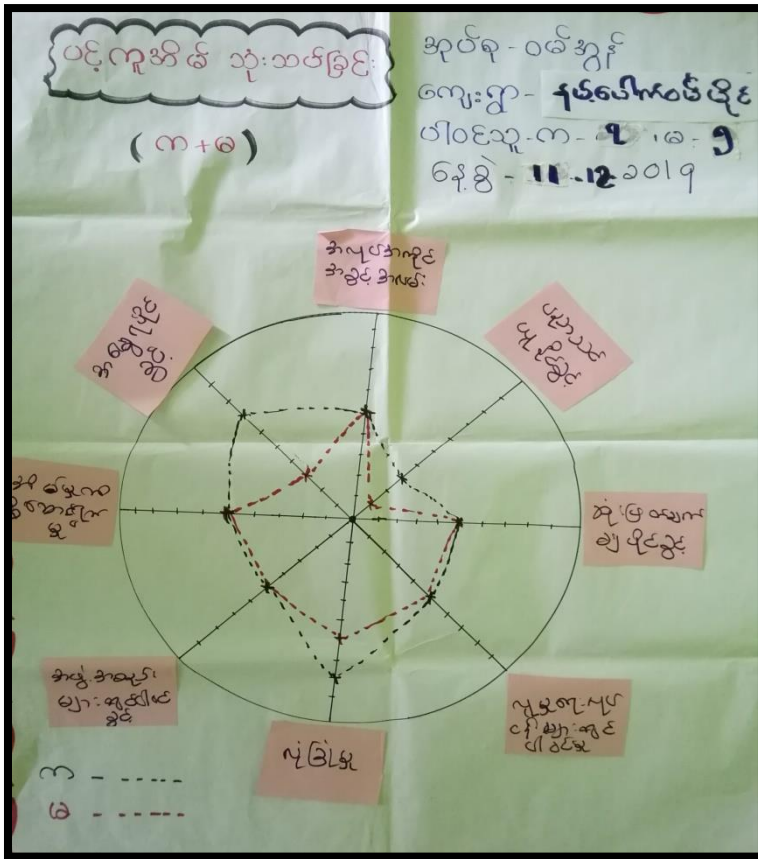 ပင့်ကူအိမ် သုံးသပ်ခြင်း
(က+မ)
အုပ်စု - ဝမ်အွန်
ကျေးရွာ -
ပါဝင်သူ-က- ၊မ-
နေ့စွဲ - 11-12-2019
အလုပ်အကိုင်
အခွင့်အလမ်း
ပညာသင်
ယူနိုင်ခွင့်
ဆုံးဖြတ်ချက်
ချပိုင်ခွင့်
လူမှုရေးလုပ်
ငန်းများတွင်
ပါဝင်မှု
လုံခြုံမှု
အဖွဲ့အစည်း
များတွင်ပါဝင်
ခွင့်
အိမ်မှုကိစ္စ
မှု
အမွေပိုင်
ဆိုင်
က - - - - - -
မ - - - - - -